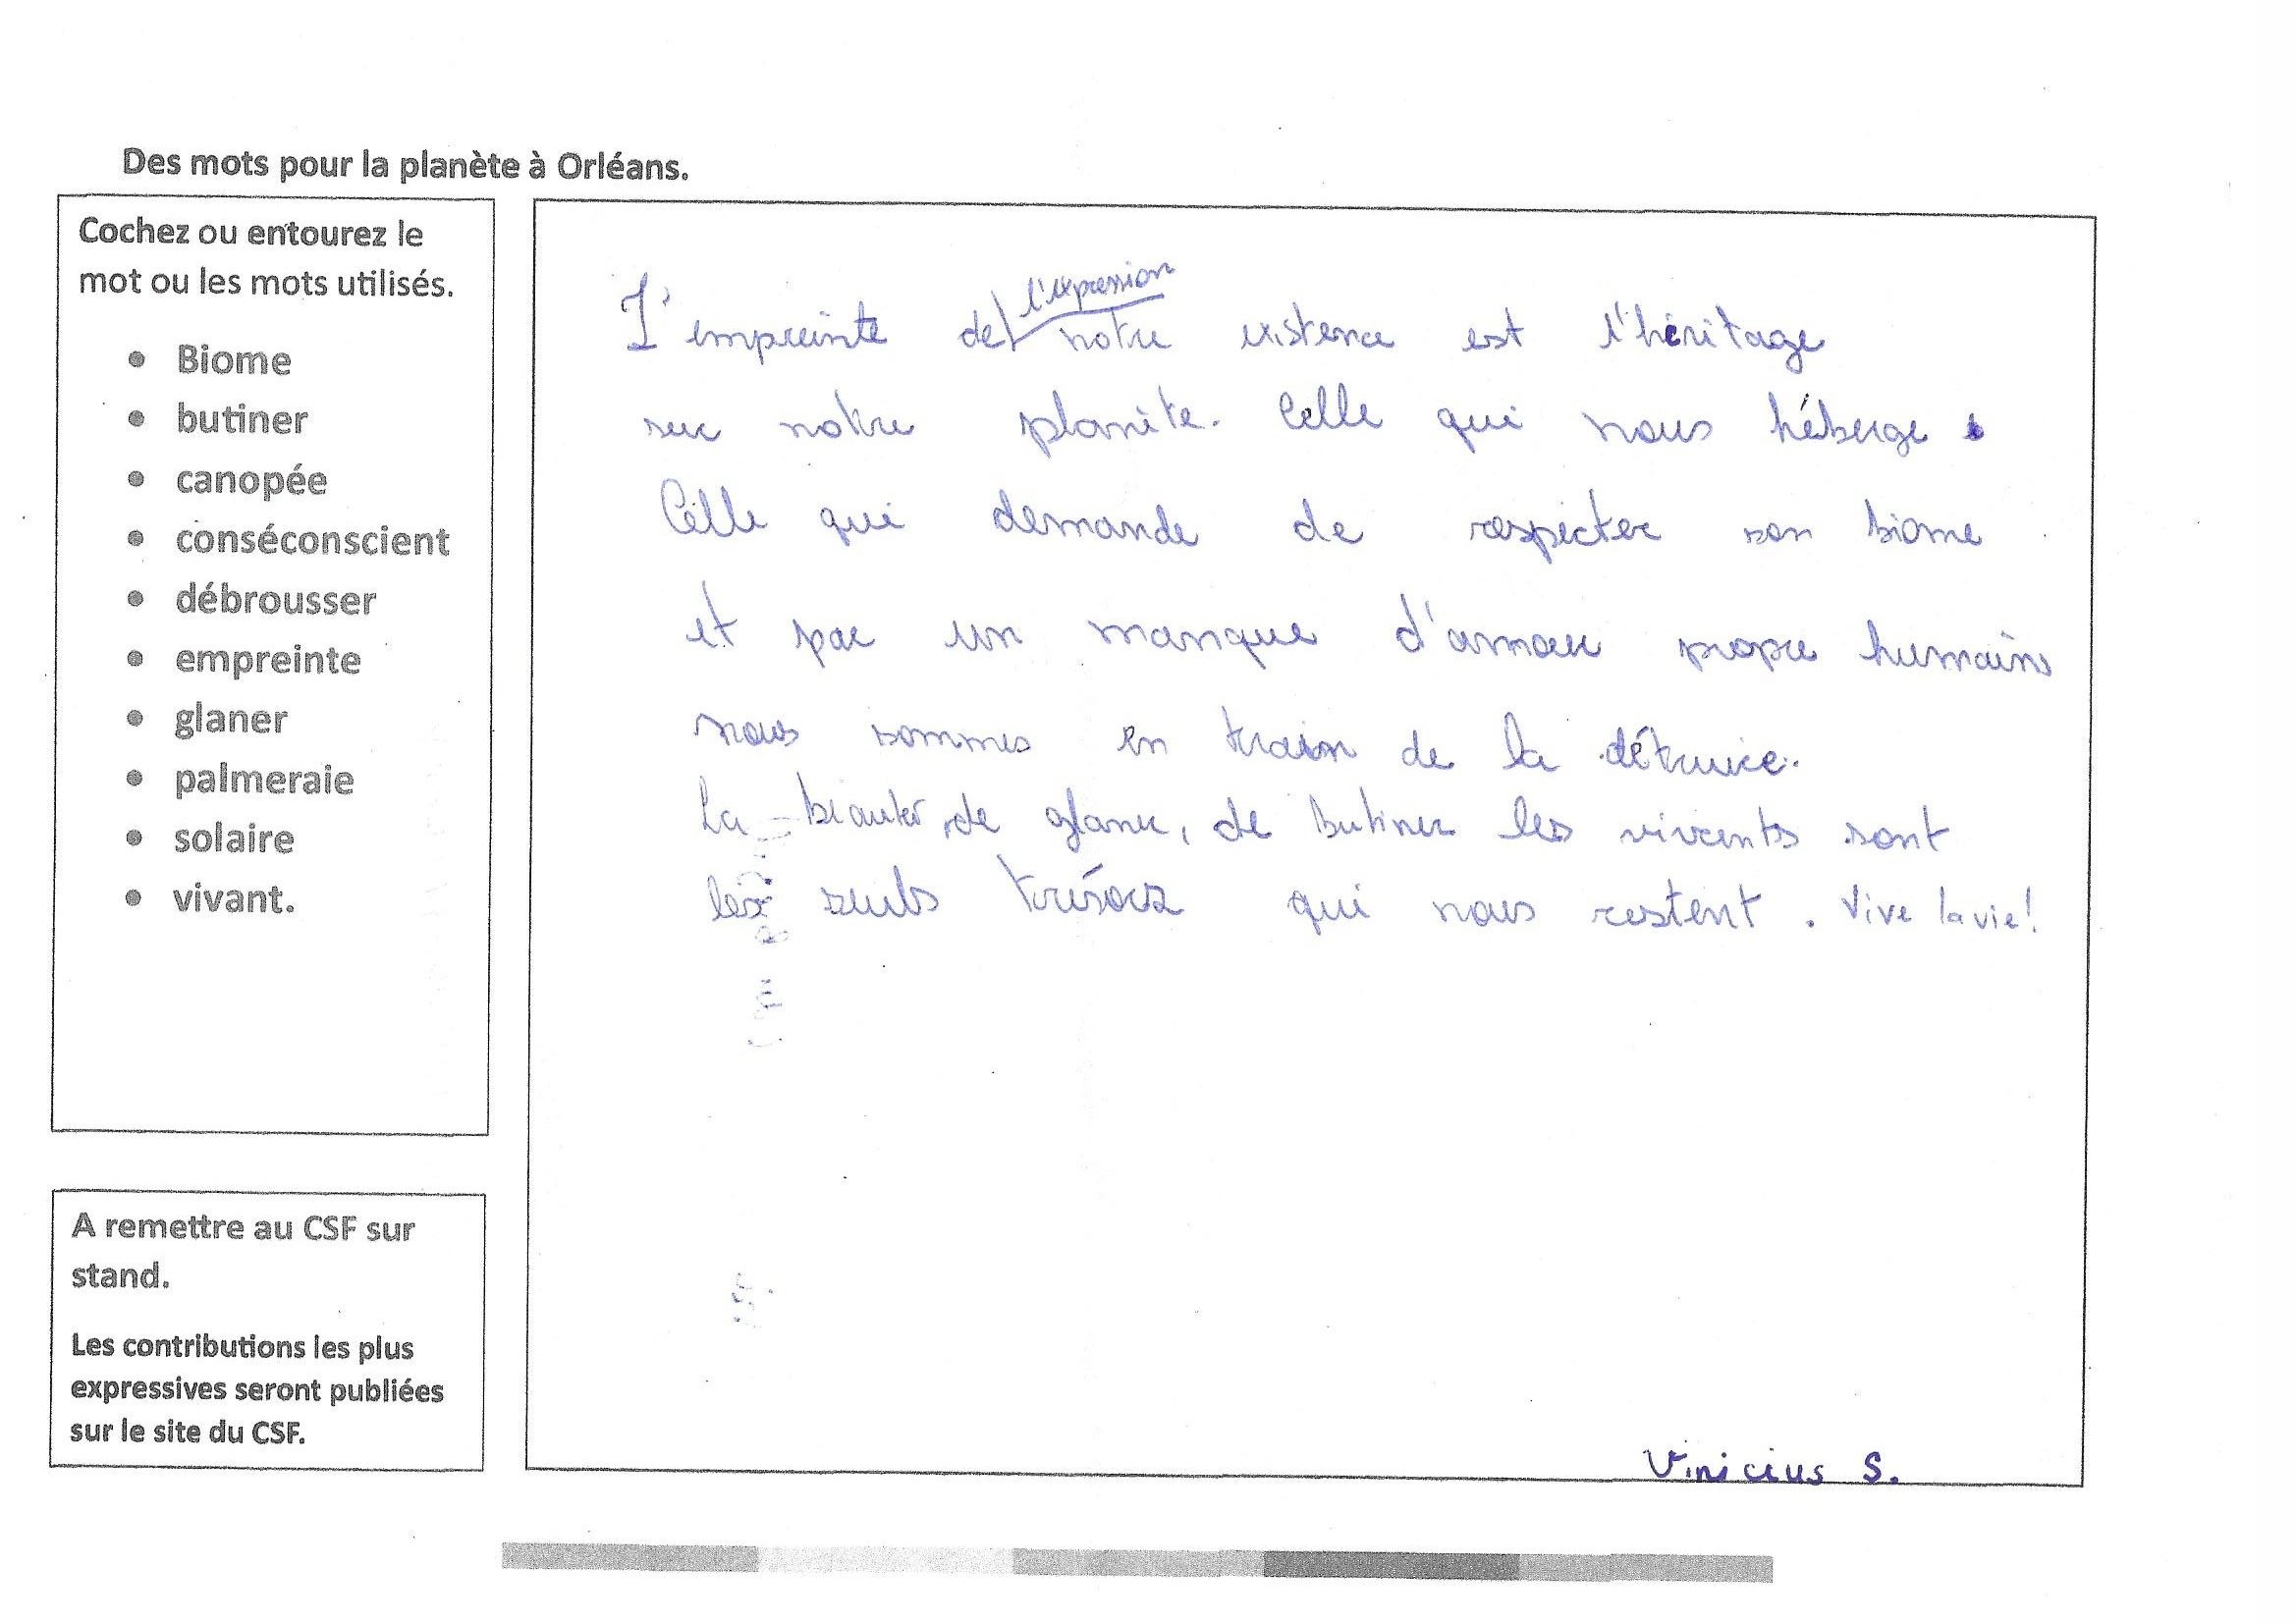 Des mots pour la planète à Orléans.
Cochez ou entourez le
mot ou les mots utilisés.
• Biome
• butiner
• canopée
• conséconscient
• débrousser
• empreinte
• glaner
• palmeraie
• solaire
• vivant.
A remettre au CSF sur
stand.
Les contributions les plus
expressives seront publiées
sur le site du CSF.
l'expression
L'empreinte de notre existence est l'héritage
sur notre planète. Celle qui nous héberge.
Celle qui demande de respecter son biome
et par un manque d'amour propre humains
nous sommes en train de la détruire.
La beauter de glaner, de butiner les vivants sont
les seuls trésors qui nous restent. Vive la vie!
Vinicius S.